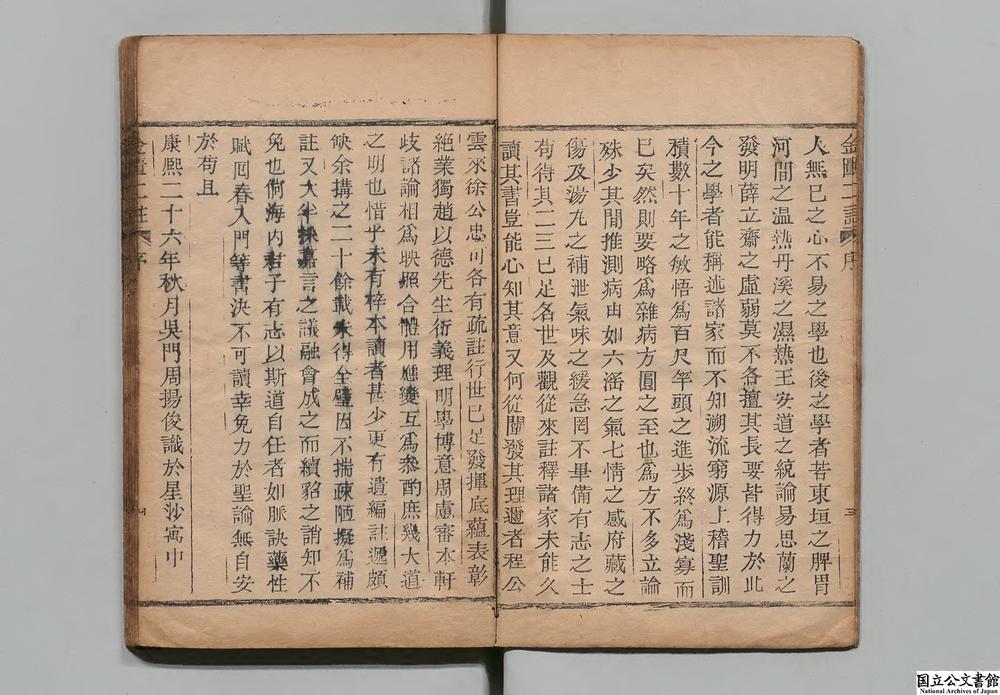 金匱二註 序
人無已之心不易之學也後之學者若東垣之脾胃
河間之温熱丹溪之濕熱王安道之統論易思蘭之
發明薛立齋之虛弱莫不各擅其長要皆得力於此
今之學者能稱述諸家而不知溯流窮源上稽聖訓
積數十年之敏悟爲百尺竿頭之進步終爲淺尠而
已矣然則要略爲雜病方圓之至也爲方不多立論
殊少其間推測病由如六滛之氣七情之感府藏之
傷及湯丸之補泄氣味之緩急罔不畢備有志之士
苟得其二三已足名世及觀從來註釋諸家未能久
讀其書豈能心知其意又何從闡發其理邇者程公
三
雲來徐公忠可各有疏註行世已足發揮底蘊表彰
絶業獨趙以德先生衍義理明學博意周慮審本軒
歧諸論相爲映照合體用應變互爲參酌庶幾大道
之明也惜乎未有梓本讀者甚少更有遺編註遞頗
缺余搆之二十餘載未得全璧因不揣疎陋擬爲補
註又大半採嘉言之議融會成之而續貂之誚知不
免也倘海内君子有志以斯道自任者如脈訣藥性
賦囘春入門等書決不可讀幸免力於聖論無自安
於苟且
康熙二十六年秋月吳門周揚俊識於星沙寓中
金匱二註 序
四
国立公文書館
National Archives of Japan